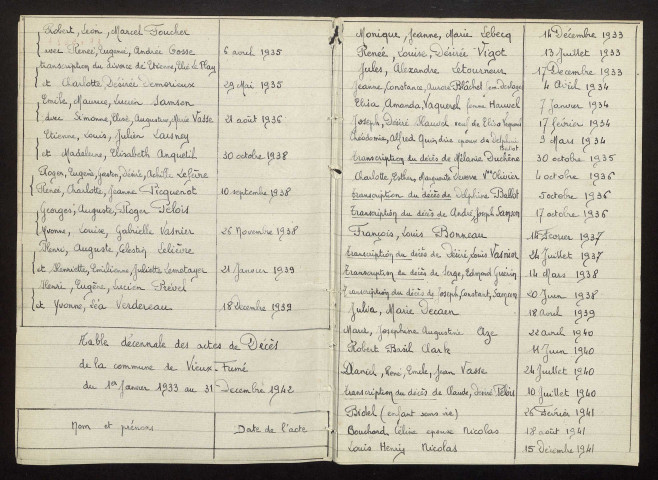 Robert, Léon, Marcel Foucher
avec Renée, Eugénie, Andrée Gosse 6 avril 1935
transcription du divorce de Etienne, Elie Le Play
et Charlotte Désirée Demorieux 29 Mai 1935
Emile, Maurice, Lucien Samson
avec Simonne, Augustine, Marie Vasse 21 août 1936
Etienne, Louis, Julien Lasney
et Madeleine, Elisabeth Anquetil 30 octobre 1938
Roger, Eugène, Gaston, Désiré, Achille Lelièvre
Renée, Charlotte, Jeanne Picquenot 10 septembre 1938
Georges, Auguste, Roger Pelois
Yvonne, Louise, Gabrielle Vasnier 26 Novembre 1938
Henri, Auguste, Célestin Lelièvre
et Henriette, Emilienne, Juliette Lemetayer 21 Janvier 1939
Henri, Eugène, Lucien Prével
et Yvonne, Léa Verdereau 18 décembre 1939
Table décennale des actes de Décès
de la commune de Vieux-Fumé
du 1er Janvier 1933 au 31 Décembre 1942
Nom et prénoms Date de l'acte
Monique, Jeanne, Marie Lebecq 14 Décembre 1933
Renée, Louise, Désirée Vigot 13 Juillet 1933
Jules, Alexandre Letourneur 17 Décembre 1933
Jeanne, Constance, Aurore Bléchet 4 Avril 1934
Elisa Amanda, Vaquerel femme Hauvel 7 Janvier 1934
Joseph, Désiré Hauvel veuf de Elisa Vaquerel 17 février 1934
Alfred Quin, époux de Delphine Ballot 3 Mars 1934
transcription du décès de Mélanie Duchêne 30 octobre 1935
Charlotte, Esther, Marguerite Vve Olivier 4 octobre 1936
transcription du décès de Delphine Ballot 5 octobre 1936
Transcription du décès de André, Joseph Samson 17 octobre 1936
François, Louis Bonneau 14 Février 1937
transcription du décès de Désiré, Louis Vasnier 24 Juillet 1937
Transcription du décès de Serge, Edmond Guérin 14 Mars 1938
Transcription du décès de Joseph, Constant, Samson 20 Juin 1938
Julia, Marie Decaen 18 avril 1939
Marie, Joséphine Augustine Aze 22 avril 1940
Robert Basil Clark 11 Juin 1940
Daniel, René, Emile, Jean Vasse 24 Juillet 1940
transcription du décès de Claude, Désiré Pelois 10 Juillet 1940
Bidel (enfant sans vie) 26 Février 1941
Bouchard Céline épouse Nicolas 18 août 1941
Louis Henri Nicolas 15 décembre 1941